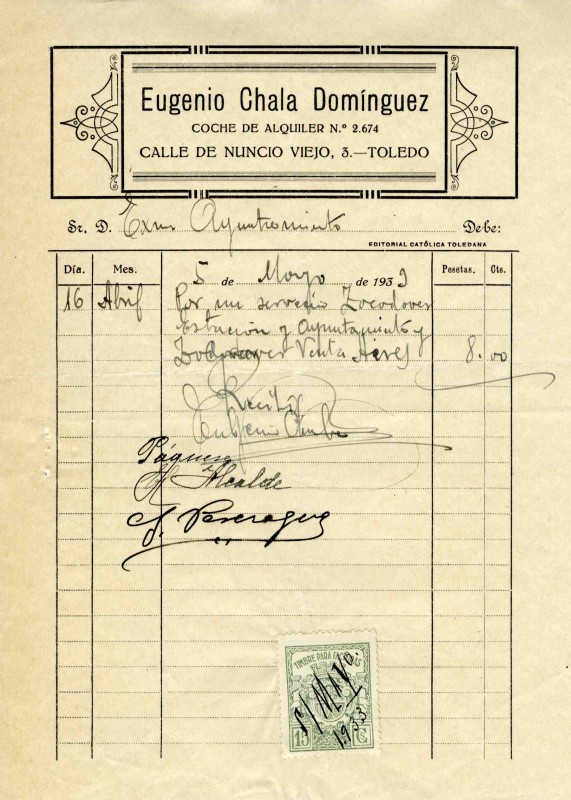 Eugenio Chala Domínguez
COCHE DE ALQUILER N.º 2.674
CALLE DE NUNCIO VIEJO, 3.—TOLEDO
Sr. D. Exmo Ayuntamiento Debe:
EDITORIAL CATÓLICA TOLEDANA
Día. Mes. 5 de Mayo de 1933 Pesetas. Cts.
16 Abril Por un servicio Zocodover
Estación y Ayuntamiento y
Zodover Venta Aires 8.00
Recibí
Eugenio Chala
Páguese
El Alcalde
TIMBRE PARA FACTURAS
5/Mayo.
1933
15 C